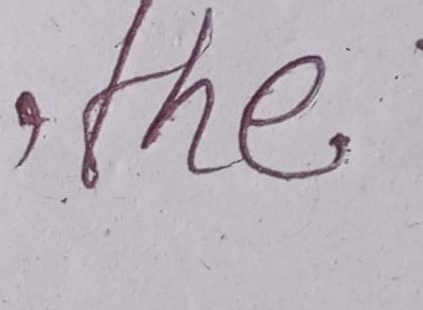 , the